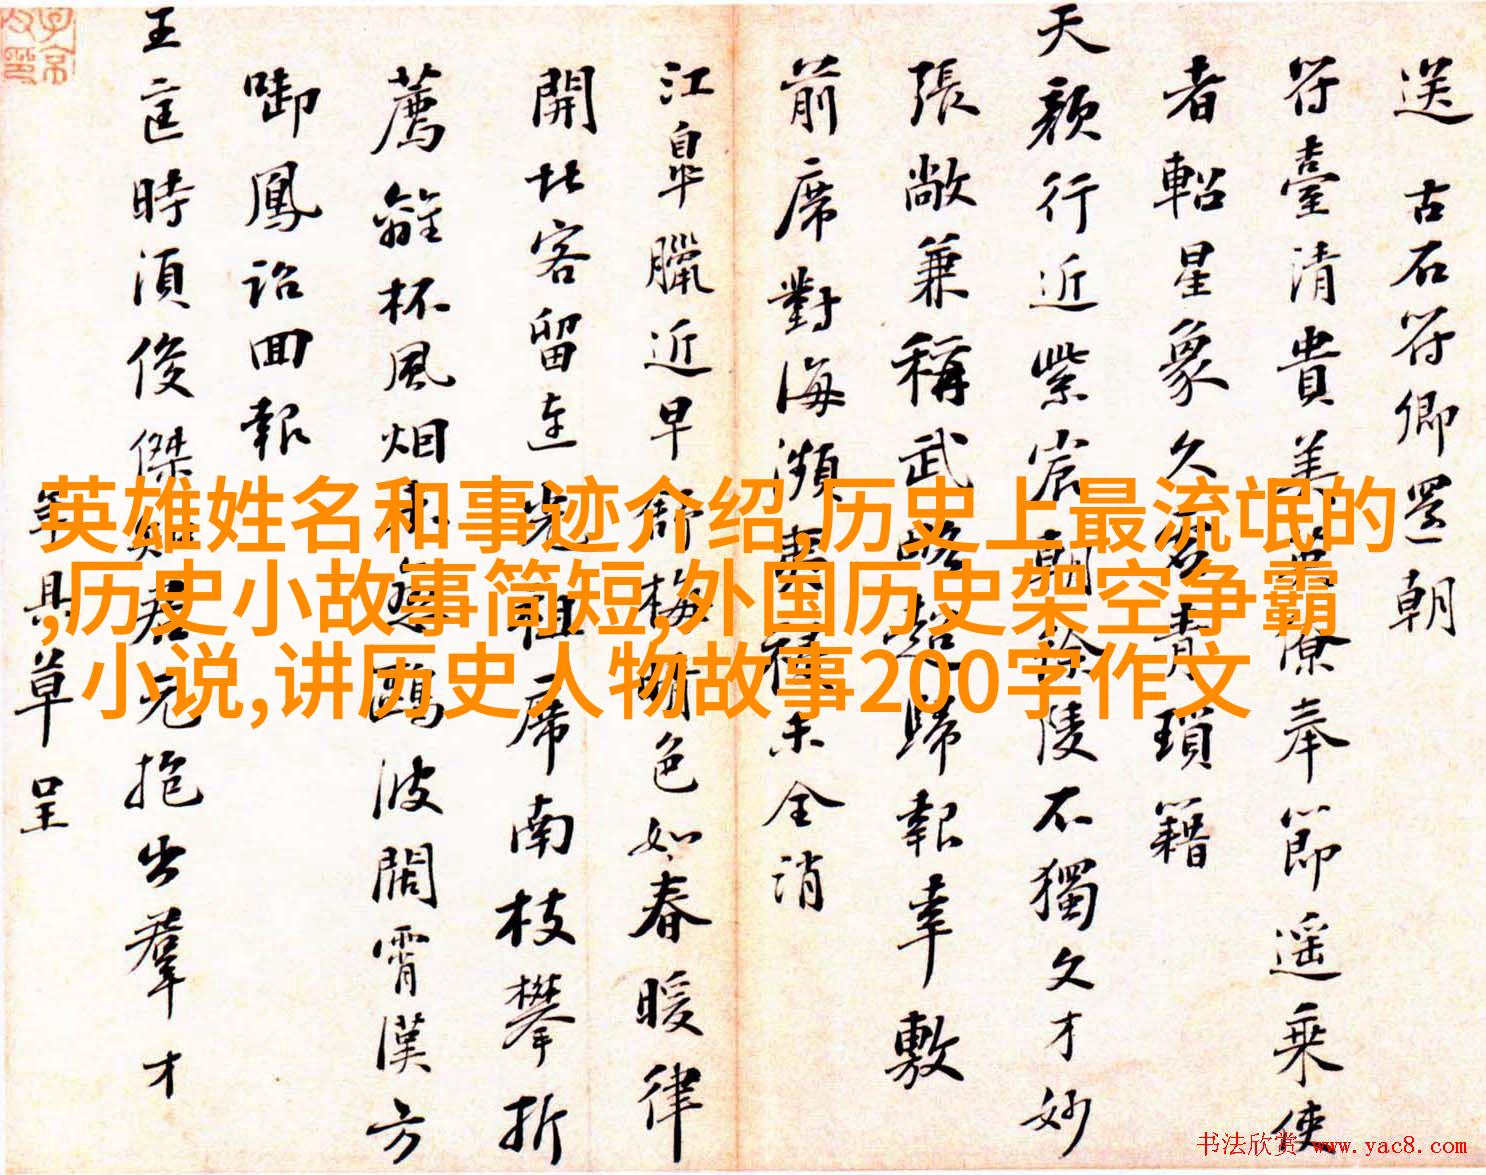 送古石符卿還朝
符臺清貴美寮奉節遥乘使
者軺星象久青瑣籍
天顏行近紫宸朝陵不獨文才妙
張敞兼稱武略超歸報幸敷
前席對海瀕未全消
江皋臘近早舒梅色如春暖律
開北客留連先祖席南枝攀折
薦離杯風烟波闊霄漢方
啣鳳詔回報
王匡時須俊傑君抱出羣才
具草呈
英雄姓名和事迹介绍,历史上最流氓的
,历史小故事简短,外国历史架空争霸
小说,讲历史人物故事200字作文
书法欣赏 www.yac8.com